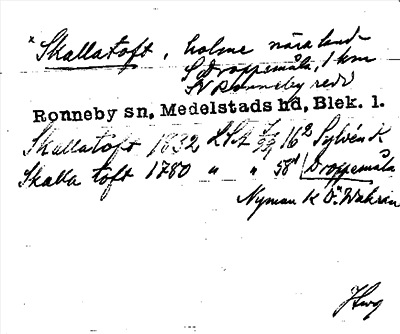 x Skallatoft, holme nära land
S Droppemåla, 1 km
SV Ronneby redd
Ronneby sn, Medelstads hd, Blek. l.
Skallatoft 1832 LSA 16² Sylvén K
Skalla toft 1780 " " 58¹ Droppemåla
Nyman K Ö. Wahrin